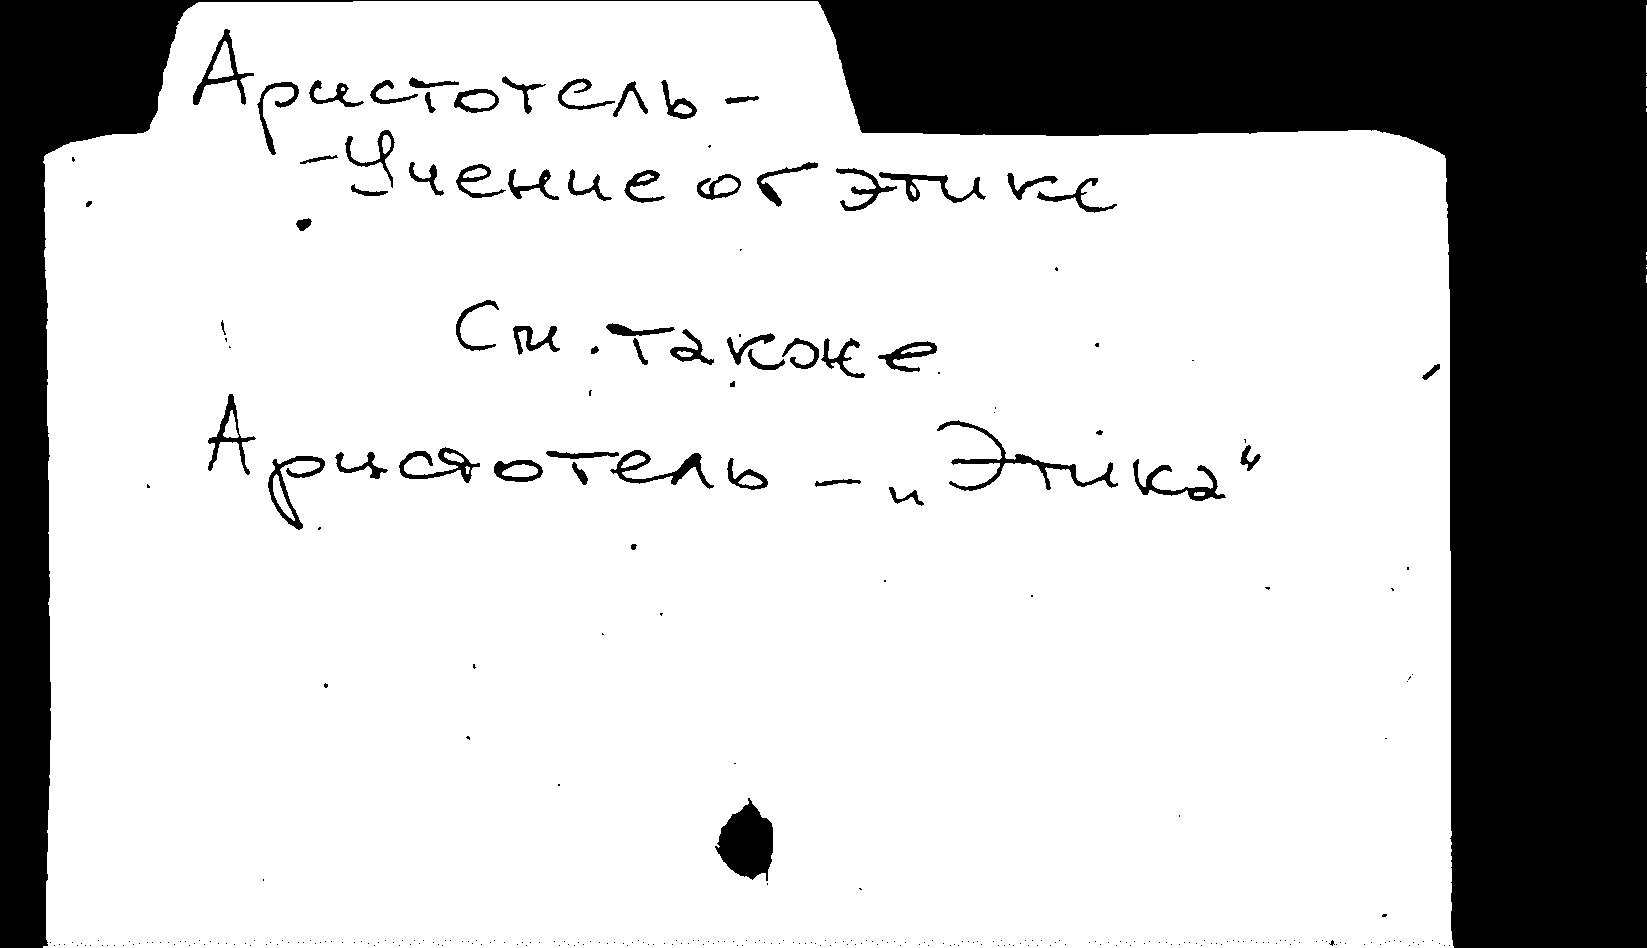 Аристотель -
- Учение об этике
См. также
Аристотель - „Этика“